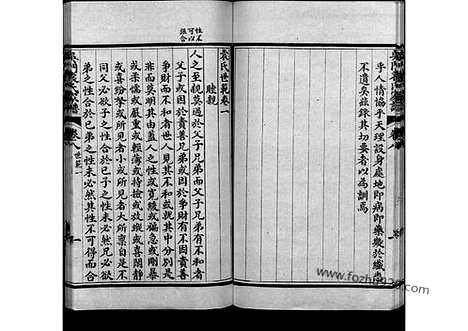 乎人情協乎天理設身處地即病即藥嚴於纖
不遺矣茲錄其切要者以為訓焉
袁氏世範卷一
睦親
性不可以強合
人之至親莫過於父子兄弟而父子兄弟有不和者
父子或因於責善兄弟或因於爭財有不因責善
爭財而不和者世人見其不和或就其中分別是
非而莫明其由蓋人之性或寬緩或褊急或剛暴
或柔懦或嚴重或輕薄或持檢或放縱或喜閒靜
或喜紛拏或所見者小或所見者大所稟自是不
同父必欲子之性合於己子之性未必然兄必欲
弟之性合於己弟之性未必然其性不可得而合
卷八 世範一
一
www.fozhu920.com